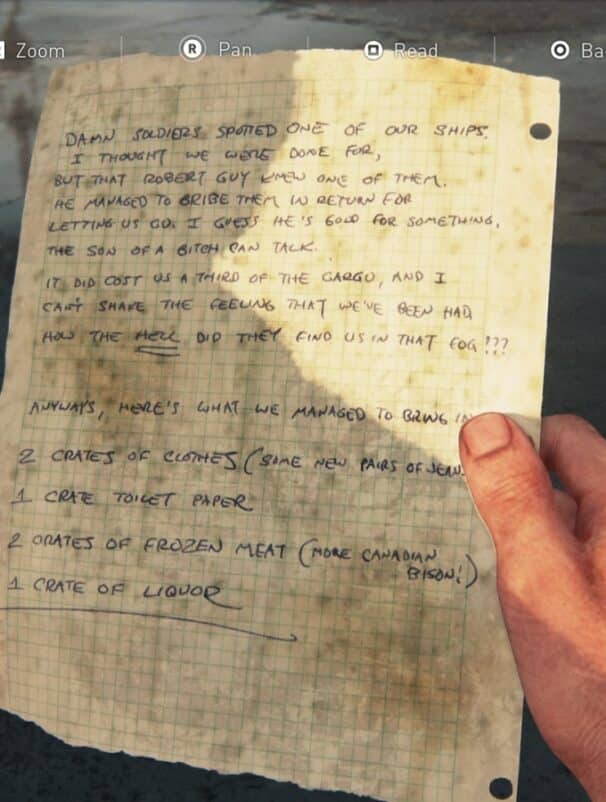 Zoom
R Pan
Read
Ba
DAMN SOLDIERS SPOTTED ONE OF OUR SHIPS.
I THOUGHT WE WERE DONE FOR,
BUT THAT ROBERT GUY KNEW ONE OF THEM.
HE MANAGED TO BRIBE THEM IN RETURN FOR
LETTING US GO. I GUESS HE'S GOOD FOR SOMETHING,
THE SON OF A BITCH CAN TALK.
IT DID COST US A THIRD OF THE CARGO, AND I
CAN'T SHAKE THE FEELING THAT WE'VE BEEN HAD
HOW THE HELL DID THEY FIND US IN THAT FOG???
ANYWAYS, HERE'S WHAT WE MANAGED TO BRING IN
2 CRATES OF CLOTHES (SOME NEW PAIRS OF JEAN
1 CRATE TOILET PAPER
2 CRATES OF FROZEN MEAT (MORE CANADIAN
BISON!)
1 CRATE OF LIQUOR